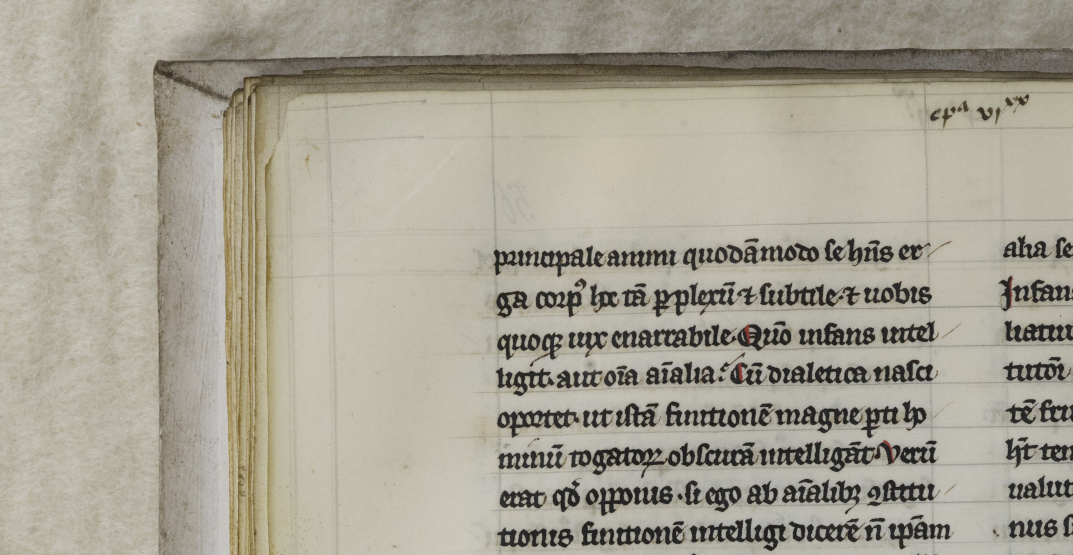 epᵃ viˣˣ
principale animi quodāmodo se hn̄s er
ga corpꝰ hec tā ꝑplexū ⁊ subtile ⁊ uobis
quoqꝫ uix enarrabile. Quō infans intel
ligit. aut oīa aīalia? Cū dialetica nasci
oportet. ut istā finitionē magne ꝑti ho
minū togatoꝝ obscurā intelligāt. Verū
erat qđ opponis. si ego ab aīalibꝫ ꝯstitu
tionis finitionē intelligi dicerē n̄ ip̄am
alia se
Infan
liatiu
tutōi
tē fru
hn̄t ten
ualut
nus s